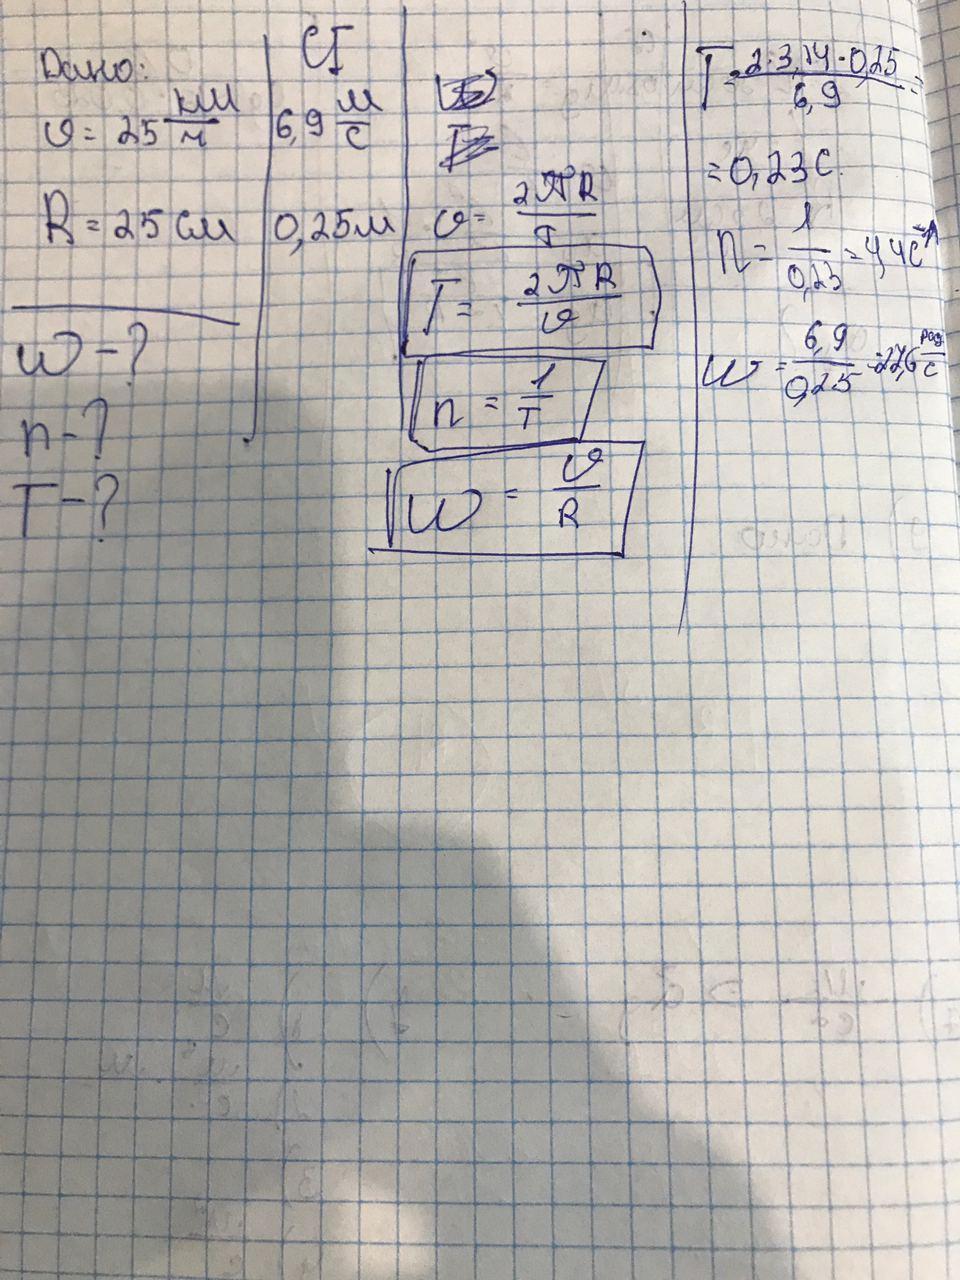 Дано:
υ = 25 км/ч
R = 25 см
ω - ?
n - ?
T - ?
СІ
6,9 м/с
0,25м
υ = 2πR/T
T = 2πR/υ
n = 1/T
ω = υ/R
T = 2·3,14·0,25/6,9 =
= 0,23с
n = 1/0,23 = 4,4с⁻¹
ω = 6,9/0,25 = 27,6 рад/с